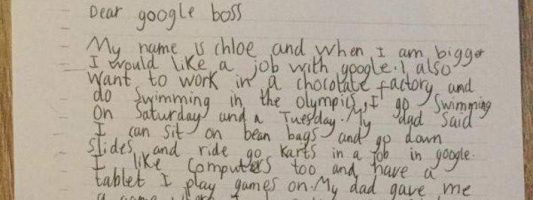 Dear google boss
My name is chloe and when I am bigger
I would like a job with google. I also
want to work in a chocolate factory and
do swimming in the olympics. I go swimming
on Saturday and a Tuesday. My dad said
I can sit on bean bags and go down
slides and ride go karts in a job in google.
I like computers too and have a
tablet I play games on. My dad gave me
a game where